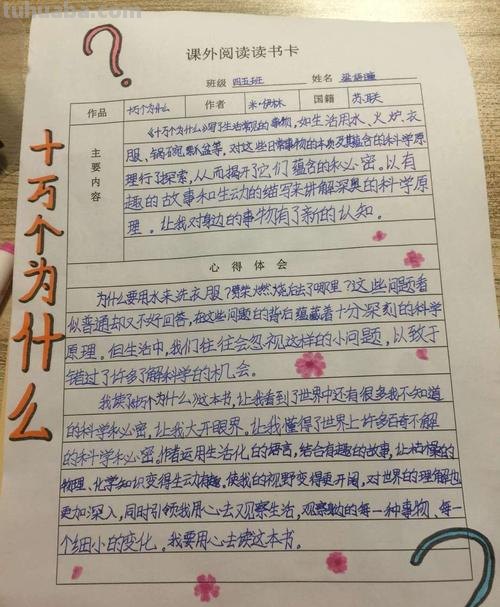 tuhuaba.com
课外阅读读书卡
班级 四五班 姓名
作品 十万个为什么 作者 米·伊林 国籍 苏联
主要内容
《十万个为什么》写了生活常见的事物,如生活用水、火炉、衣
服、锅碗瓢盆等,对这些日常事物的本质及其蕴含的科学原
理行了探索,从而揭开了它们蕴含的秘密。以有
趣的故事和生动的描写来讲解深奥的科学原
理。让我对身边的事物有了新的认知。
十万个为什么
心得体会
为什么要用水来洗衣服?燃烧后去了哪里?这些问题看
似普通却又不好回答,在这些问题的背后蕴藏着十分深刻的科学
原理。但生活中,我们往往会忽视这样的小问题,以致于
错过了许多了解科学的机会。
我读《十万个为什么》这本书,让我看到了世界中还有很多我不知道
的科学秘密,让我大开眼界。让我懂得了世界上许多百奇不解
的科学秘密。作者运用生活化的语言,结合有趣的故事,让枯燥的
物理、化学知识变得生动有趣,使我的视野变得更开阔,对世界的理解也
更加深入,同时引领我用心去观察生活,观察身边的每一种事物、每一
个细小的变化。我要用心去读这本书。